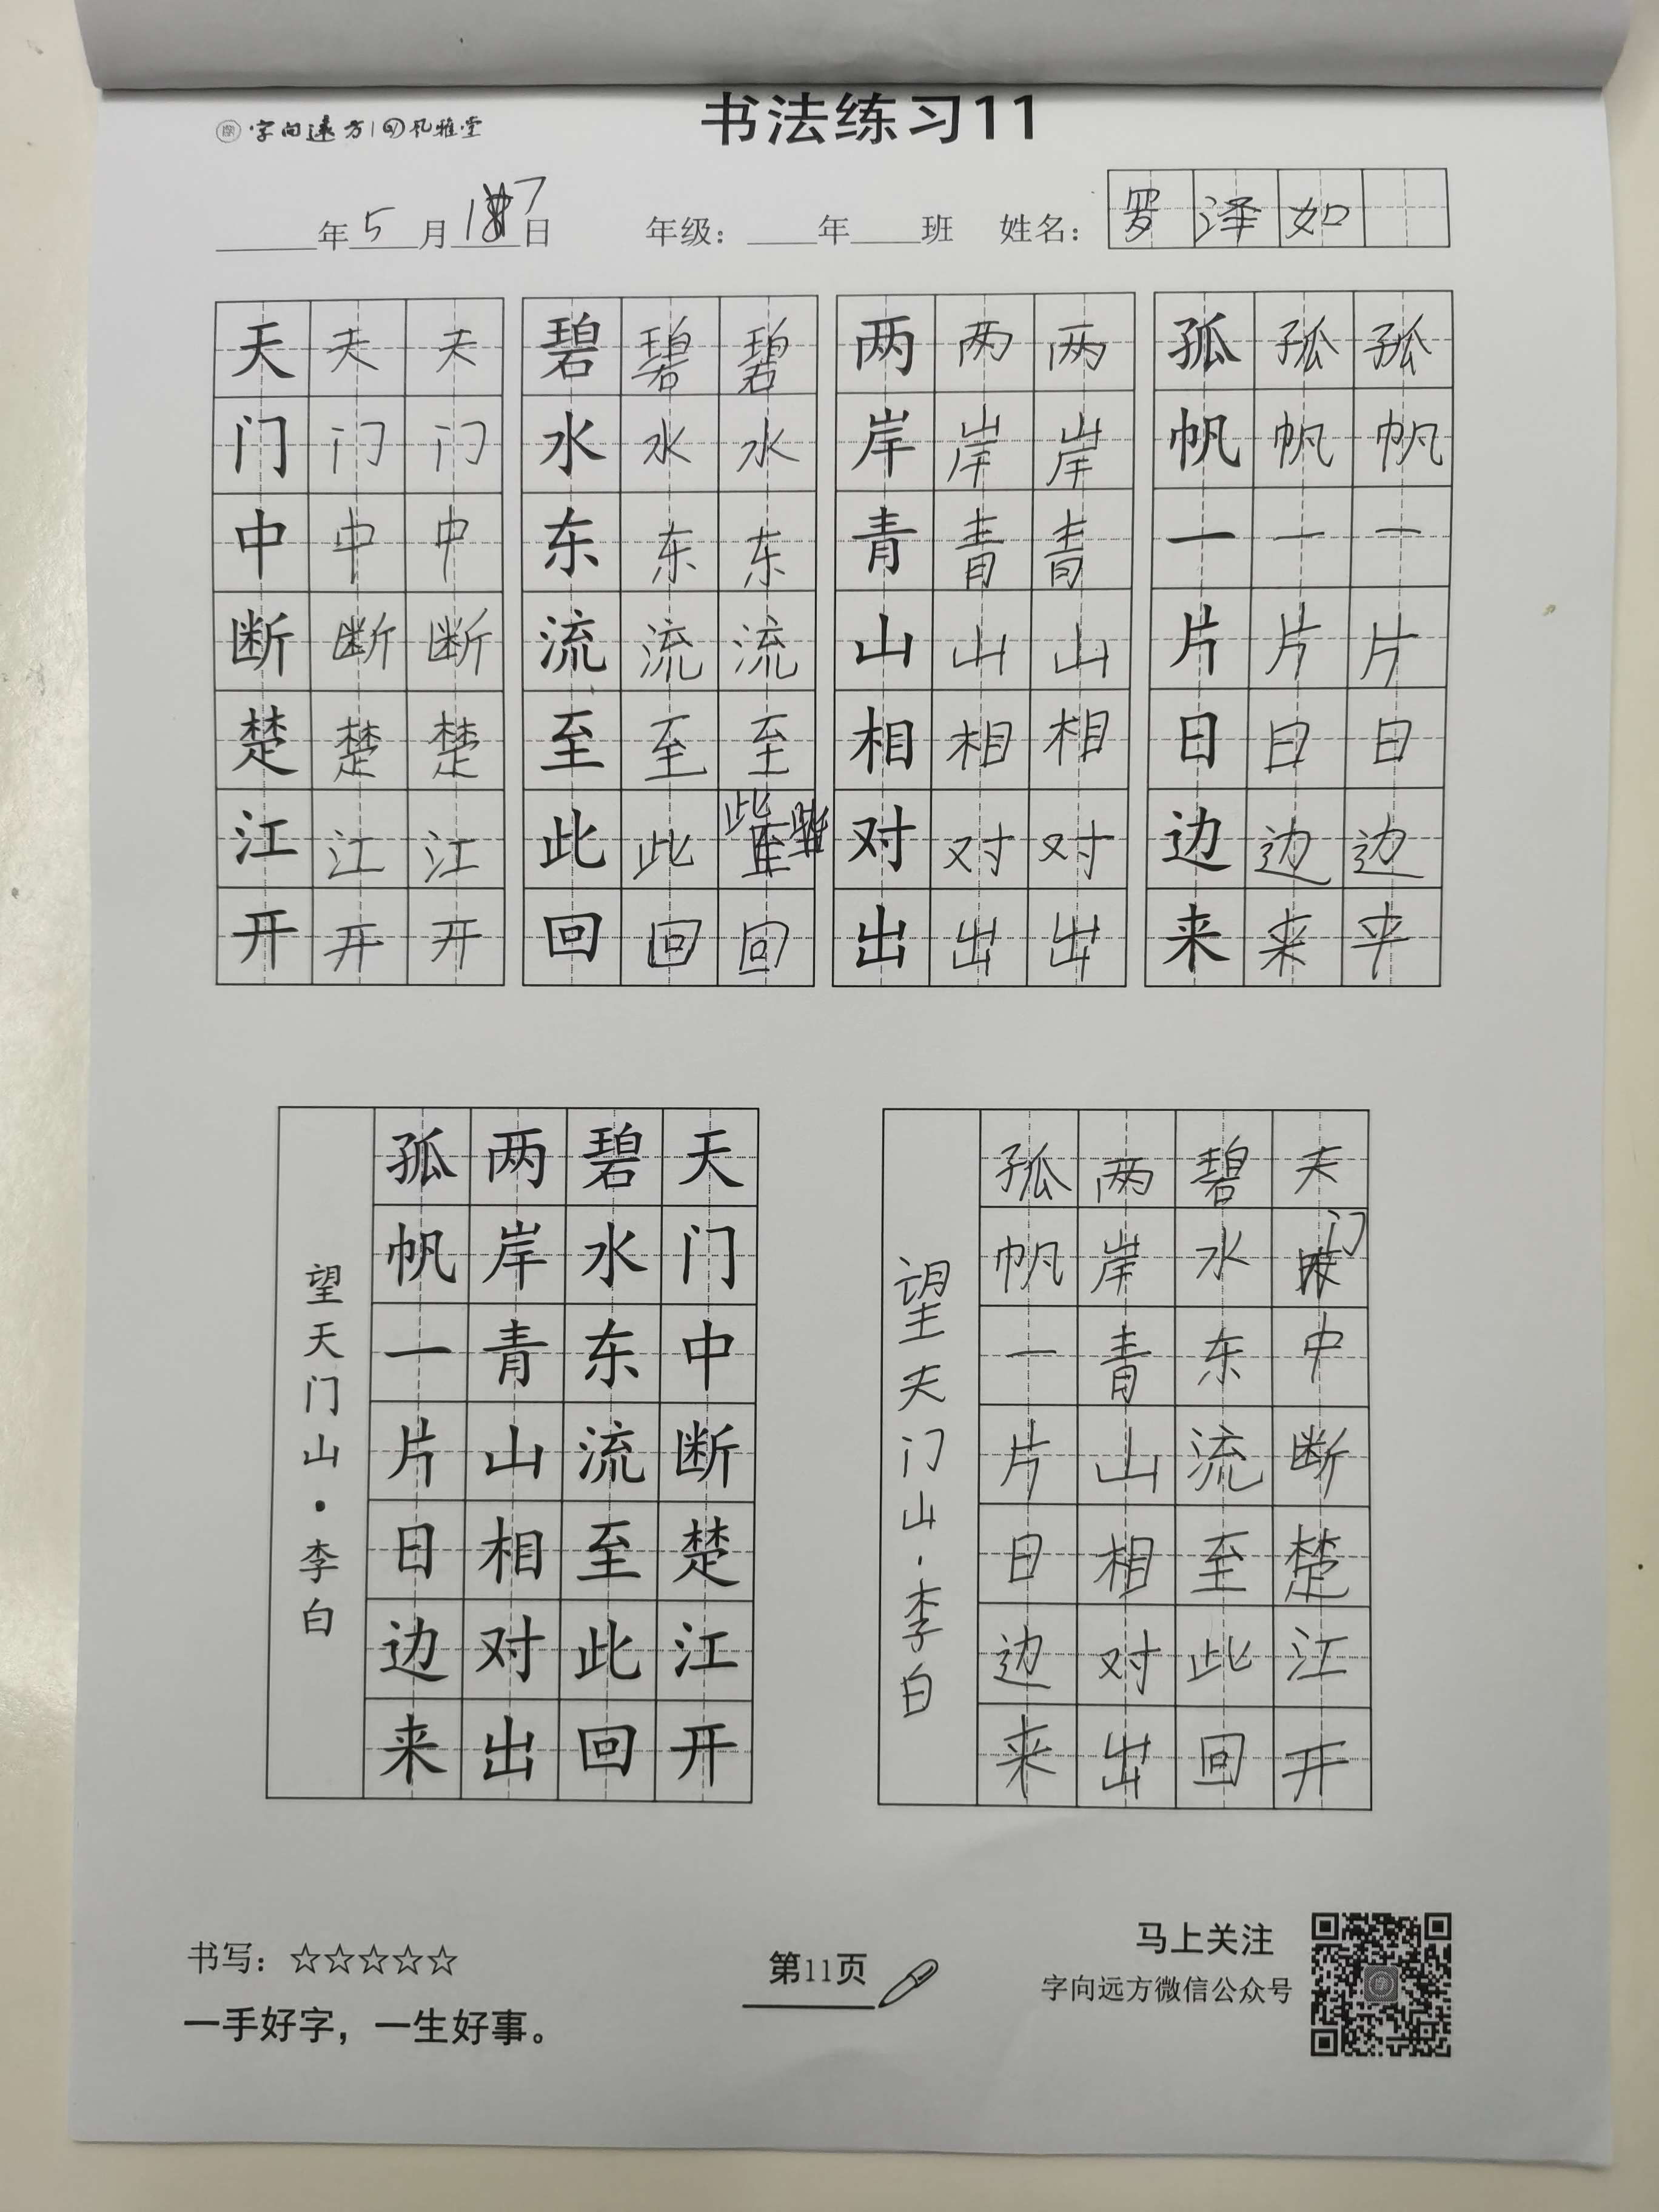 字向远方 | 风雅堂
书法练习11
年5月17日 年级： 年 班 姓名：罗泽如
天天天 碧碧碧 两两两 孤孤孤
门门门 水水水 岸岸岸 帆帆帆
中中中 东东东 青青青 一一一
断断断 流流流 山山山 片片片
楚楚楚 至至至 相相相 日日日
江江江 此此此 对对对 边边边
开开开 回回回 出出出 来来平
天门中断楚江开
碧水东流至此回
两岸青山相对出
孤帆一片日边来
望天门山·李白
天门中断楚江开
碧水东流至此回
两岸青山相对出
孤帆一片日边来
望天门山·李白
书写：☆☆☆☆☆
一手好字，一生好事。
第11页
马上关注
字向远方微信公众号